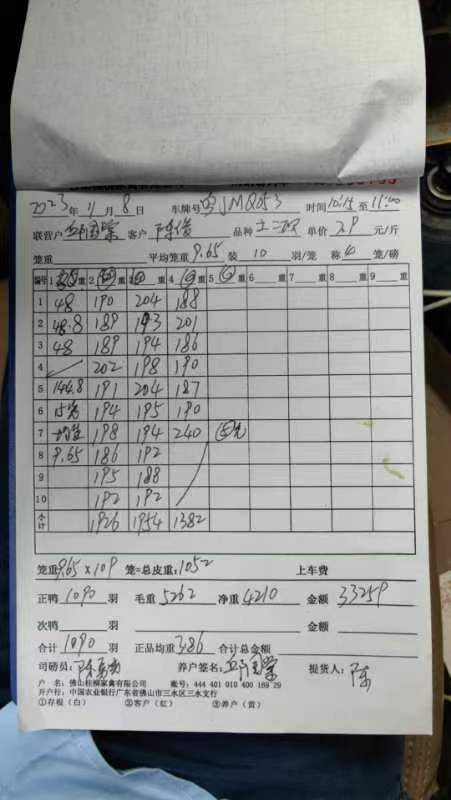 2023年11月8日 车牌号粤JM9053 时间10:15至11:00
联营户 客户陈俊 品种土二双 单价7.9元/斤
笼重 平均笼重9.65 装10羽/笼 称4笼/磅
编号 1 重 2 重 3 重 4 重 5 重 6 重 7 重 8 重 9 重
1 48 190 204 188
2 48.8 189 193 201
3 48 189 194 186
4 202 198 190
5 144.8 191 204 187
6 15笼 194 195 190
7 均重 198 194 240 ⑤笼
8 9.65 186 192
9 195 188
10 192 192
小计 1926 1954 1382
笼重9.65×109笼=总皮重:1052 上车费
正鸭1090羽 毛重5262 净重4210 金额33259
次鸭 羽 金额
合计1090羽 正品均重3.86 合计总金额
司磅员: 养户签名: 提货人:陈
户 名:佛山桂柳家禽有限公司 账号:444 401 010 400 169 29
开户行:中国农业银行广东省佛山市三水区三水支行
①存根(白) ②客户(红) ③养户(黄)